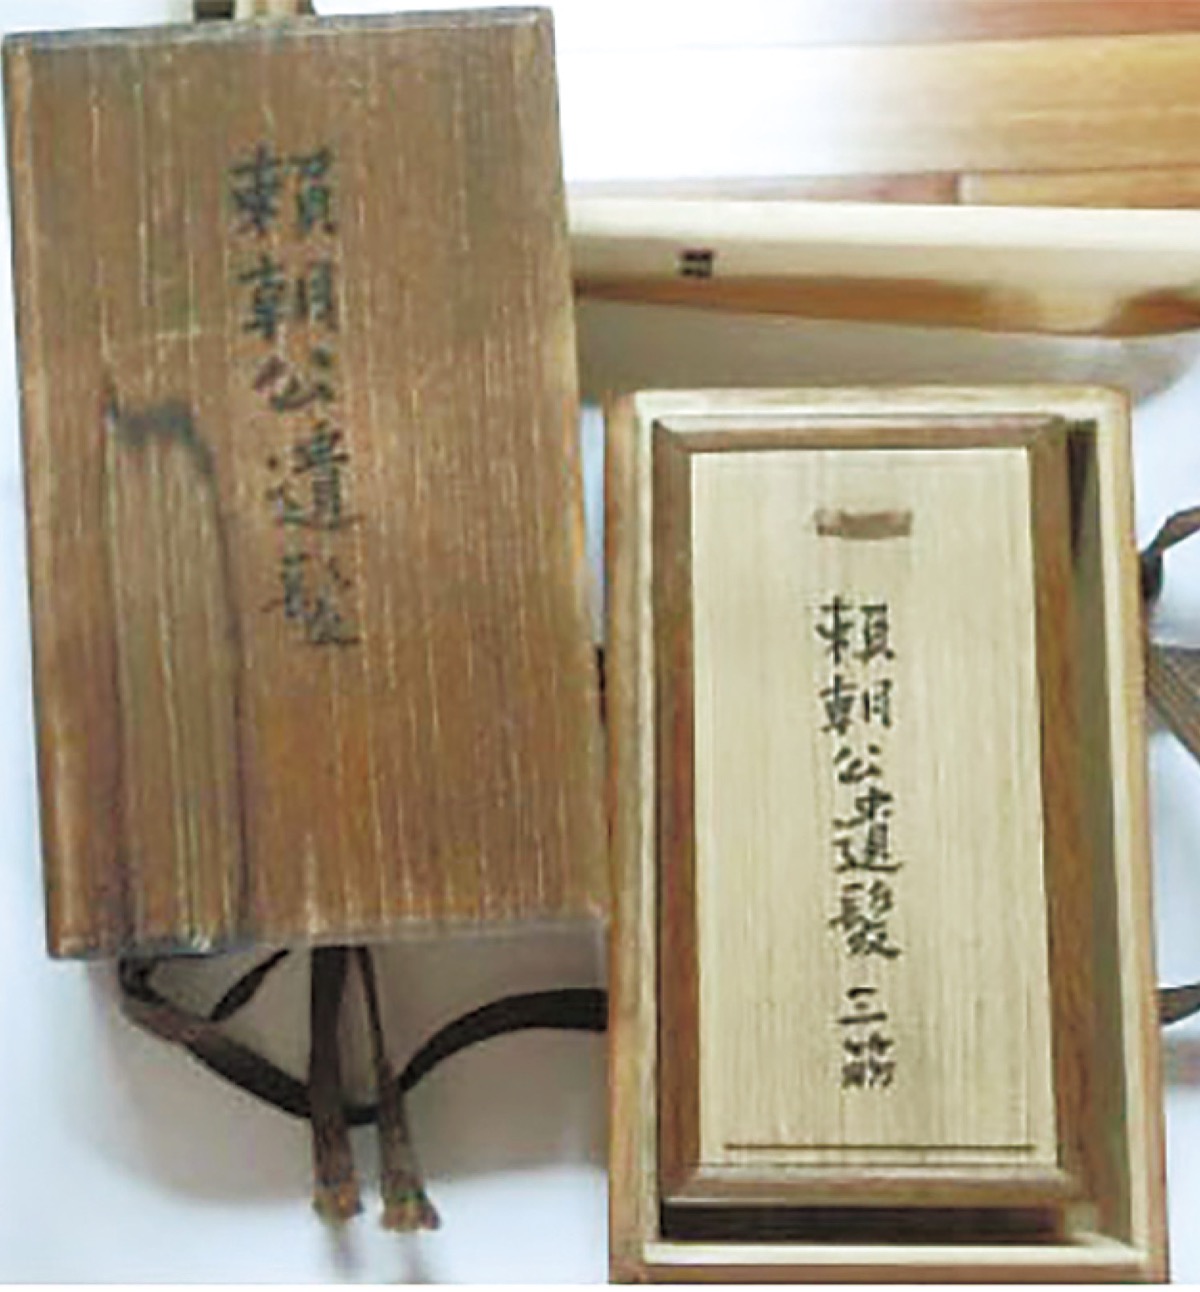 頼朝公遺髪
頼朝公遺髪 三筋